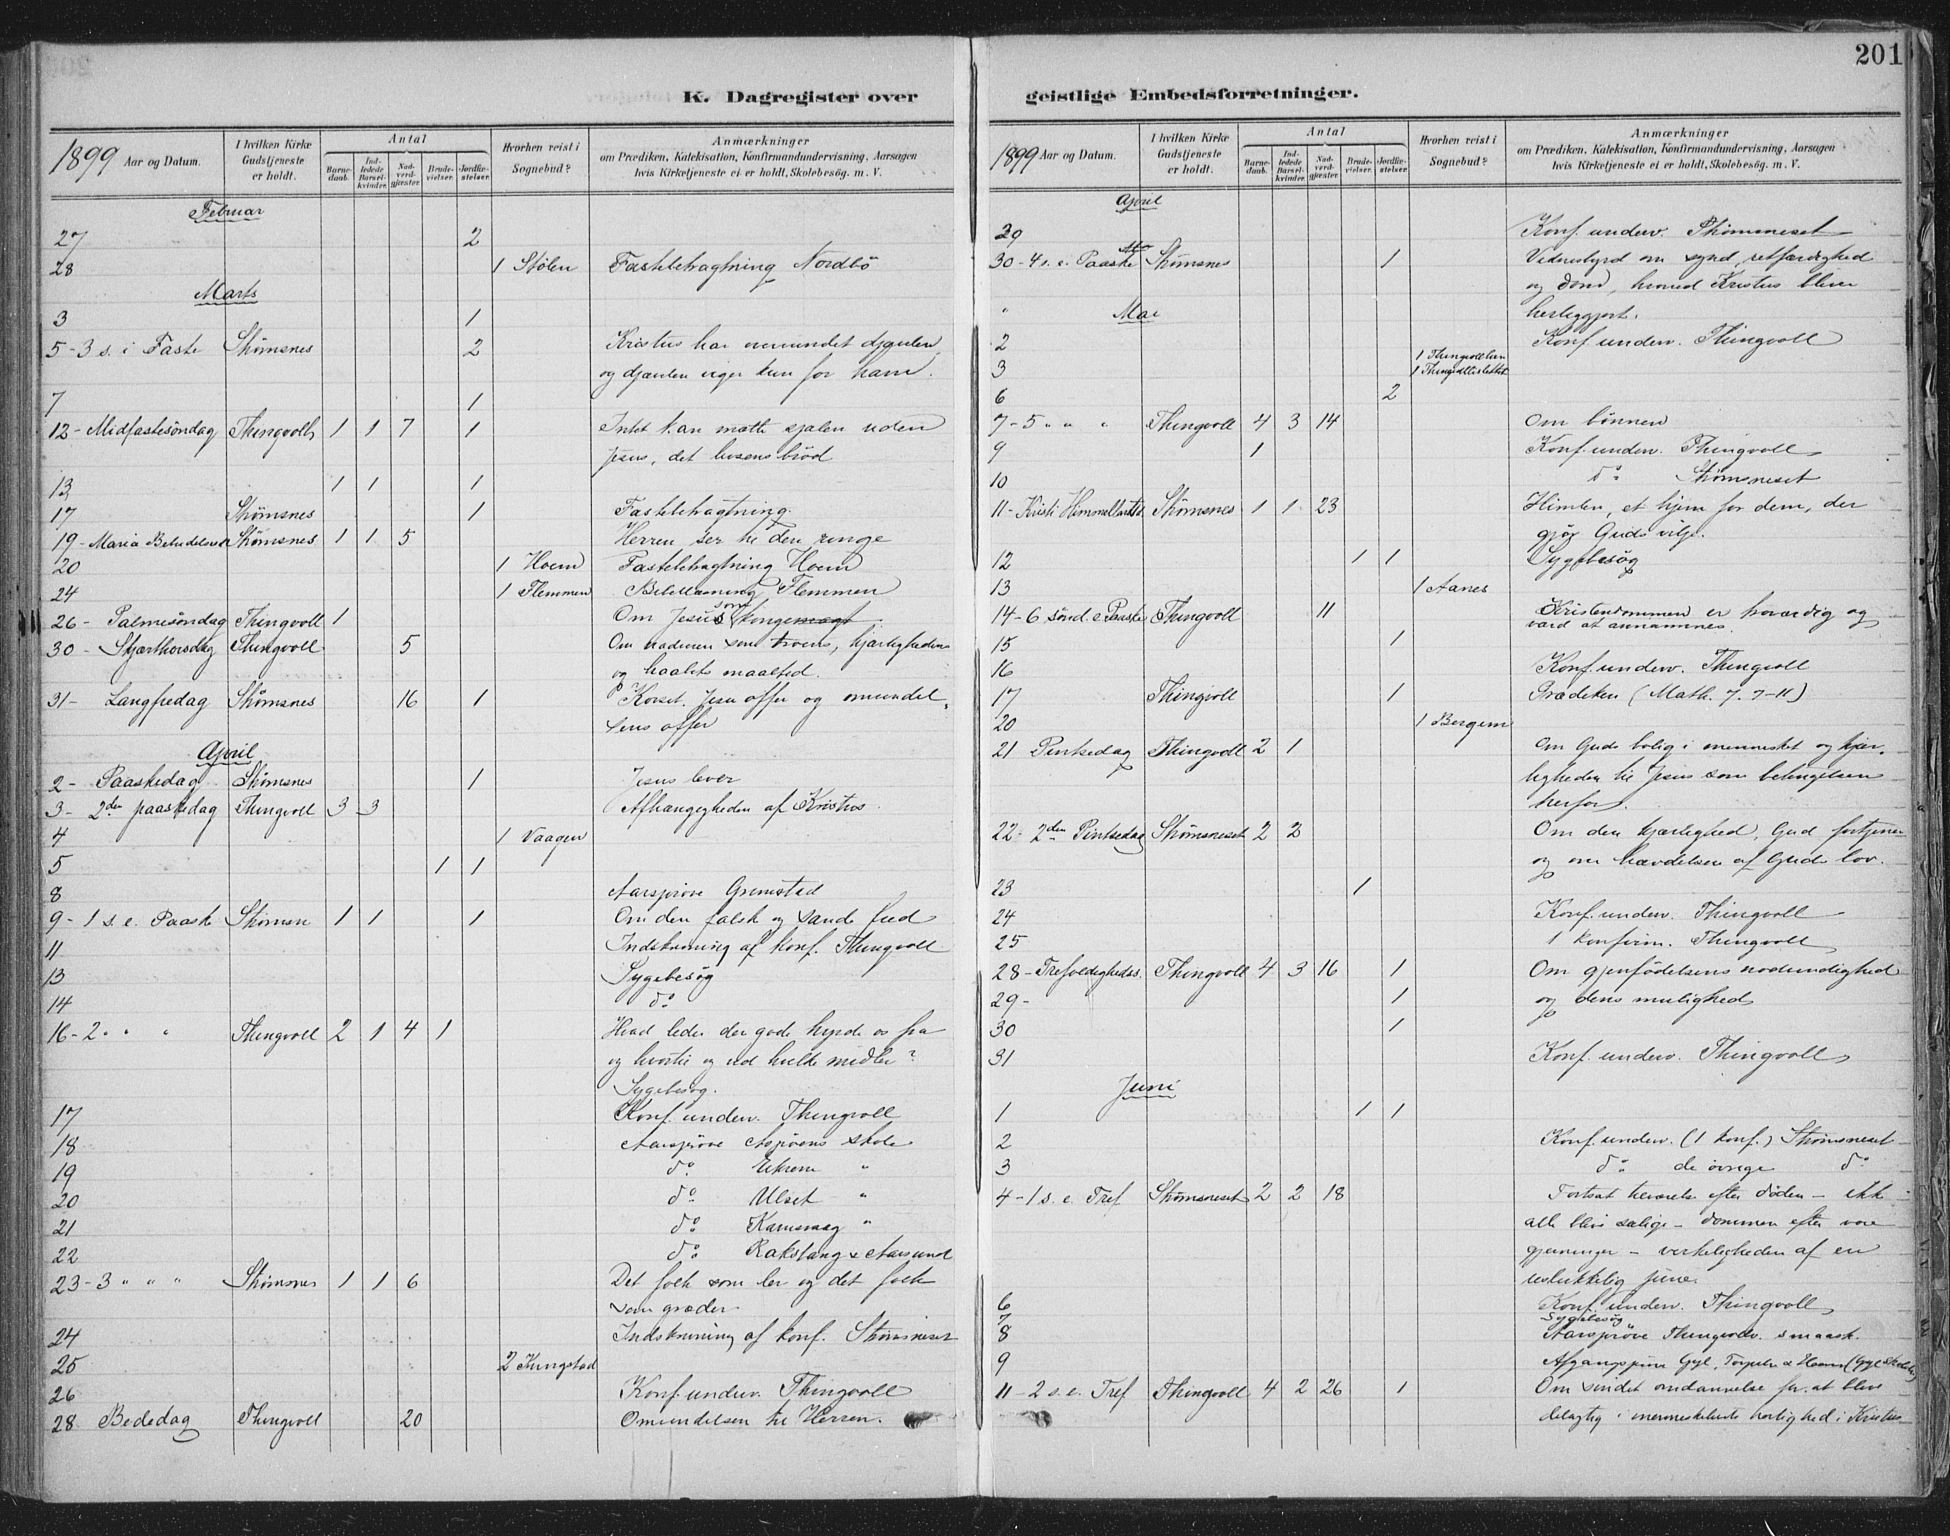 201
K. Dagregister over
1899 Aar og Datum.
I hvilken Kirke Gudstjeneste er holdt.
Antal
Barnedaab. Indledede Barselkvinder. Nadverdgjæster. Brudevielser. Jordfæstelser.
Hvorhen reist i Sognebud?
Anmærkninger
om Prædiken, Katekisation, Konfirmandundervisning, Aarsagen
hvis Kirketjeneste ei er holdt, Skolebesøg. m. V.
Februar
27 2
28 1 Stølen Fastebetragtning Nordbö
Marts
3 1
5 - 3 s. i Faste Strømsnes 2 Kristus har overvundet djævlen
og djævlen viger kun for ham.
7 1
12 - Midfastesöndag Thingvoll 1 1 7 1 Intet kan mætte sjælen uden
Jesus, det livsens bröd
13 1 1 1
17 Strømsnes 1 Fastebetragtning.
19 - Maria Bebudelses Strømsnes 1 1 5 Herren ser til den ringe
20 1 Hoem Fastebetragtning Hoem
24 1 Flemmen Bibellæsning Flemmen
26 - Palmesöndag Thingvoll 1 Om Jesus som konge
30 - Skjærthorsdag Thingvoll 5 Om nadveren som troens, kjærlighedens
og haabets maaltid.
31 - Langfredag Strømsnes 16 1 Korset. Jesu offer og omvendel-
sens offer
April
2 - Paaskedag Strømsnes 1 Jesus lever
3 - 2den paaskedag Thingvoll 3 3 Afhængigheden af Kristus.
4 1 Vaagen
5 1 1
8 Aarsprøve Grimstad
9 - 1 s. e. Paaske Strømsn 1 1 1 Om den falske og sande fred
11 Indskrivning af konf. Thingvoll
13 Sygebesøg
14 do
16 - 2 " " " Thingvoll 2 1 4 1 Hvad leder den gode hyrde os fra
og hvortil og ved hvilke midler?
Sygebesøg.
17 Konf. underv. Thingvoll
18 Aarsprøve Aspöens skole
19 do Eikrem "
20 do Ulset "
21 do Kamsvaag "
22 do Rakstang & Aarsund
23 - 3 " " " Strømsnes 1 1 6 Det folk som ler og det folk
som græder
24 Indskrivning af konf. Strømsneset
25 2 Kringstad
26 Konf. underv. Thingvoll
28 Bededag Thingvoll 20 Omvendelsen til Herren.
geistlige Embedsforretninger.
1899 Aar og Datum.
I hvilken Kirke Gudstjeneste er holdt.
Antal
Barnedaab. Indledede Barselkvinder. Nadverdgjæster. Brudevielser. Jordfæstelser.
Hvorhen reist i Sognebud?
Anmærkninger
om Prædiken, Katekisation, Konfirmandundervisning, Aarsagen
hvis Kirketjeneste ei er holdt, Skolebesøg. m. V.
April
29 Konf. underv. Strømsneset
30 - 4 s. e. Paaske Strømsnes 1 Vidnesbyrd om synd, retfærdighed
og dom, hvorved Kristus bliver
" Mai herliggjort.
2 Konf. underv. Thingvoll
3 1 Thingvoll 1 Thingvoll
6 2
7 - 5 " " " Thingvoll 4 3 14 Om bönnen
9 1 Konf. underv. Thingvoll
10 do Strømsneset
11 - Kristi Himmelfartsd. Strømsnes 1 1 23 Himlen, et hjem for dem, der
gjör Guds vilje.
12 1 1 Sygebesøg
13 1 Aanes
14 - 6 sönd. e. Paaske Thingvoll 11 Kristendommen er troværdig og
værd at annammes.
15 1
16 Konf. underv. Thingvoll
17 Thingvoll 1 Prædiken (Math. 7. 7-11)
20 1 Bergem
21 Pintsedag Thingvoll 2 1 Om Guds bolig i mennesket og kjær-
ligheden til Jesus som betingelsen
herfor.
22 - 2den Pintsedag Strømsneset 2 2 Om den kjærlighed, Gud fortjener
og om hævdelsen af Guds lov.
23 1
24 Konf. underv. Thingvoll
25 1 konfirm. Thingvoll
28 - Trefoldighedss. Thingvoll 4 3 16 1 Om gjenfödelsens nödvendighed
29 - 1 og dens mulighed
30 1
31 Konf. underv. Thingvoll
Juni
1 1 1
2 Konf. underv. (1 konf.) Strømsneset
3 do de övrige do
4 - 1 s. e. Tref Strømsneset 2 2 18 Fortsat tilværelse efter döden - ikke
alle blive salige - dommen efter vore
gjerninger - virkeligheden af en
ulykkelig
6 Konf. underv. Thingvoll
7 Sygebesøg
8 Aarspröve Thingvolds smaask.
9 Afgangspröve Gyl, Torjulv & Hoem (Gyl skole)
11 - 2 s. e. Tref Thingvoll 4 2 26 1 Om sindets omdannelse for at blive
delagtig i menneskelivets herlighed i Kristus